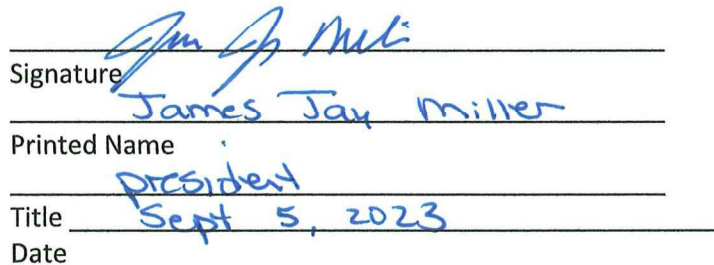 Signature
James Jay Miller
Printed Name
president
Title Sept 5, 2023
Date